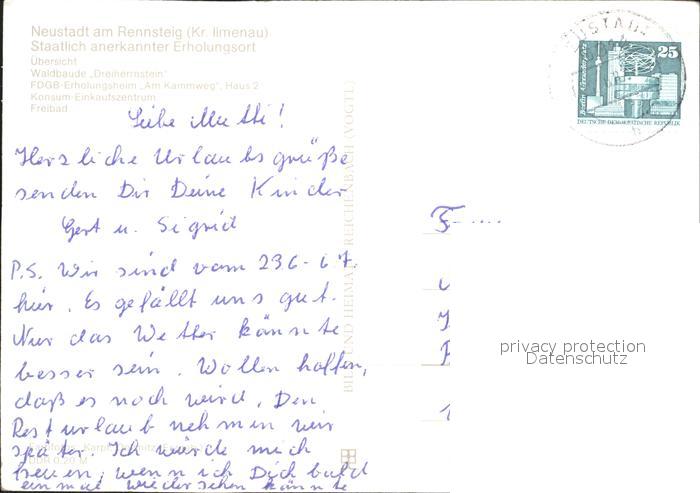 Neustadt am Rennsteig (Kr. Ilmenau)
Staatlich anerkannter Erholungsort
Übersicht
Waldbaude „Dreiherrnstein"
FDGB-Erholungsheim „Am Kammweg", Haus 2
Konsum-Einkaufszentrum
Freibad
Liebe Mutti!
Herzliche Urlaubsgrüße
senden Dir Deine Kinder
Gert u. Sigrid
P.S. Wir sind vom 23.6 - 6.7.
hier. Es gefällt uns gut.
Nur das Wetter könnte
besser sein. Wollen hoffen,
daß es noch wird. Den
Resturlaub nehmen wir
später. Ich würde mich
freuen, wenn ich Dich bald
einmal wiedersehen könnte
BILD UND HEIMAT REICHENBACH (VOGTL)
25
Berlin, Alexanderplatz
DEUTSCHE DEMOKRATISCHE REPUBLIK
privacy protection
Datenschutz